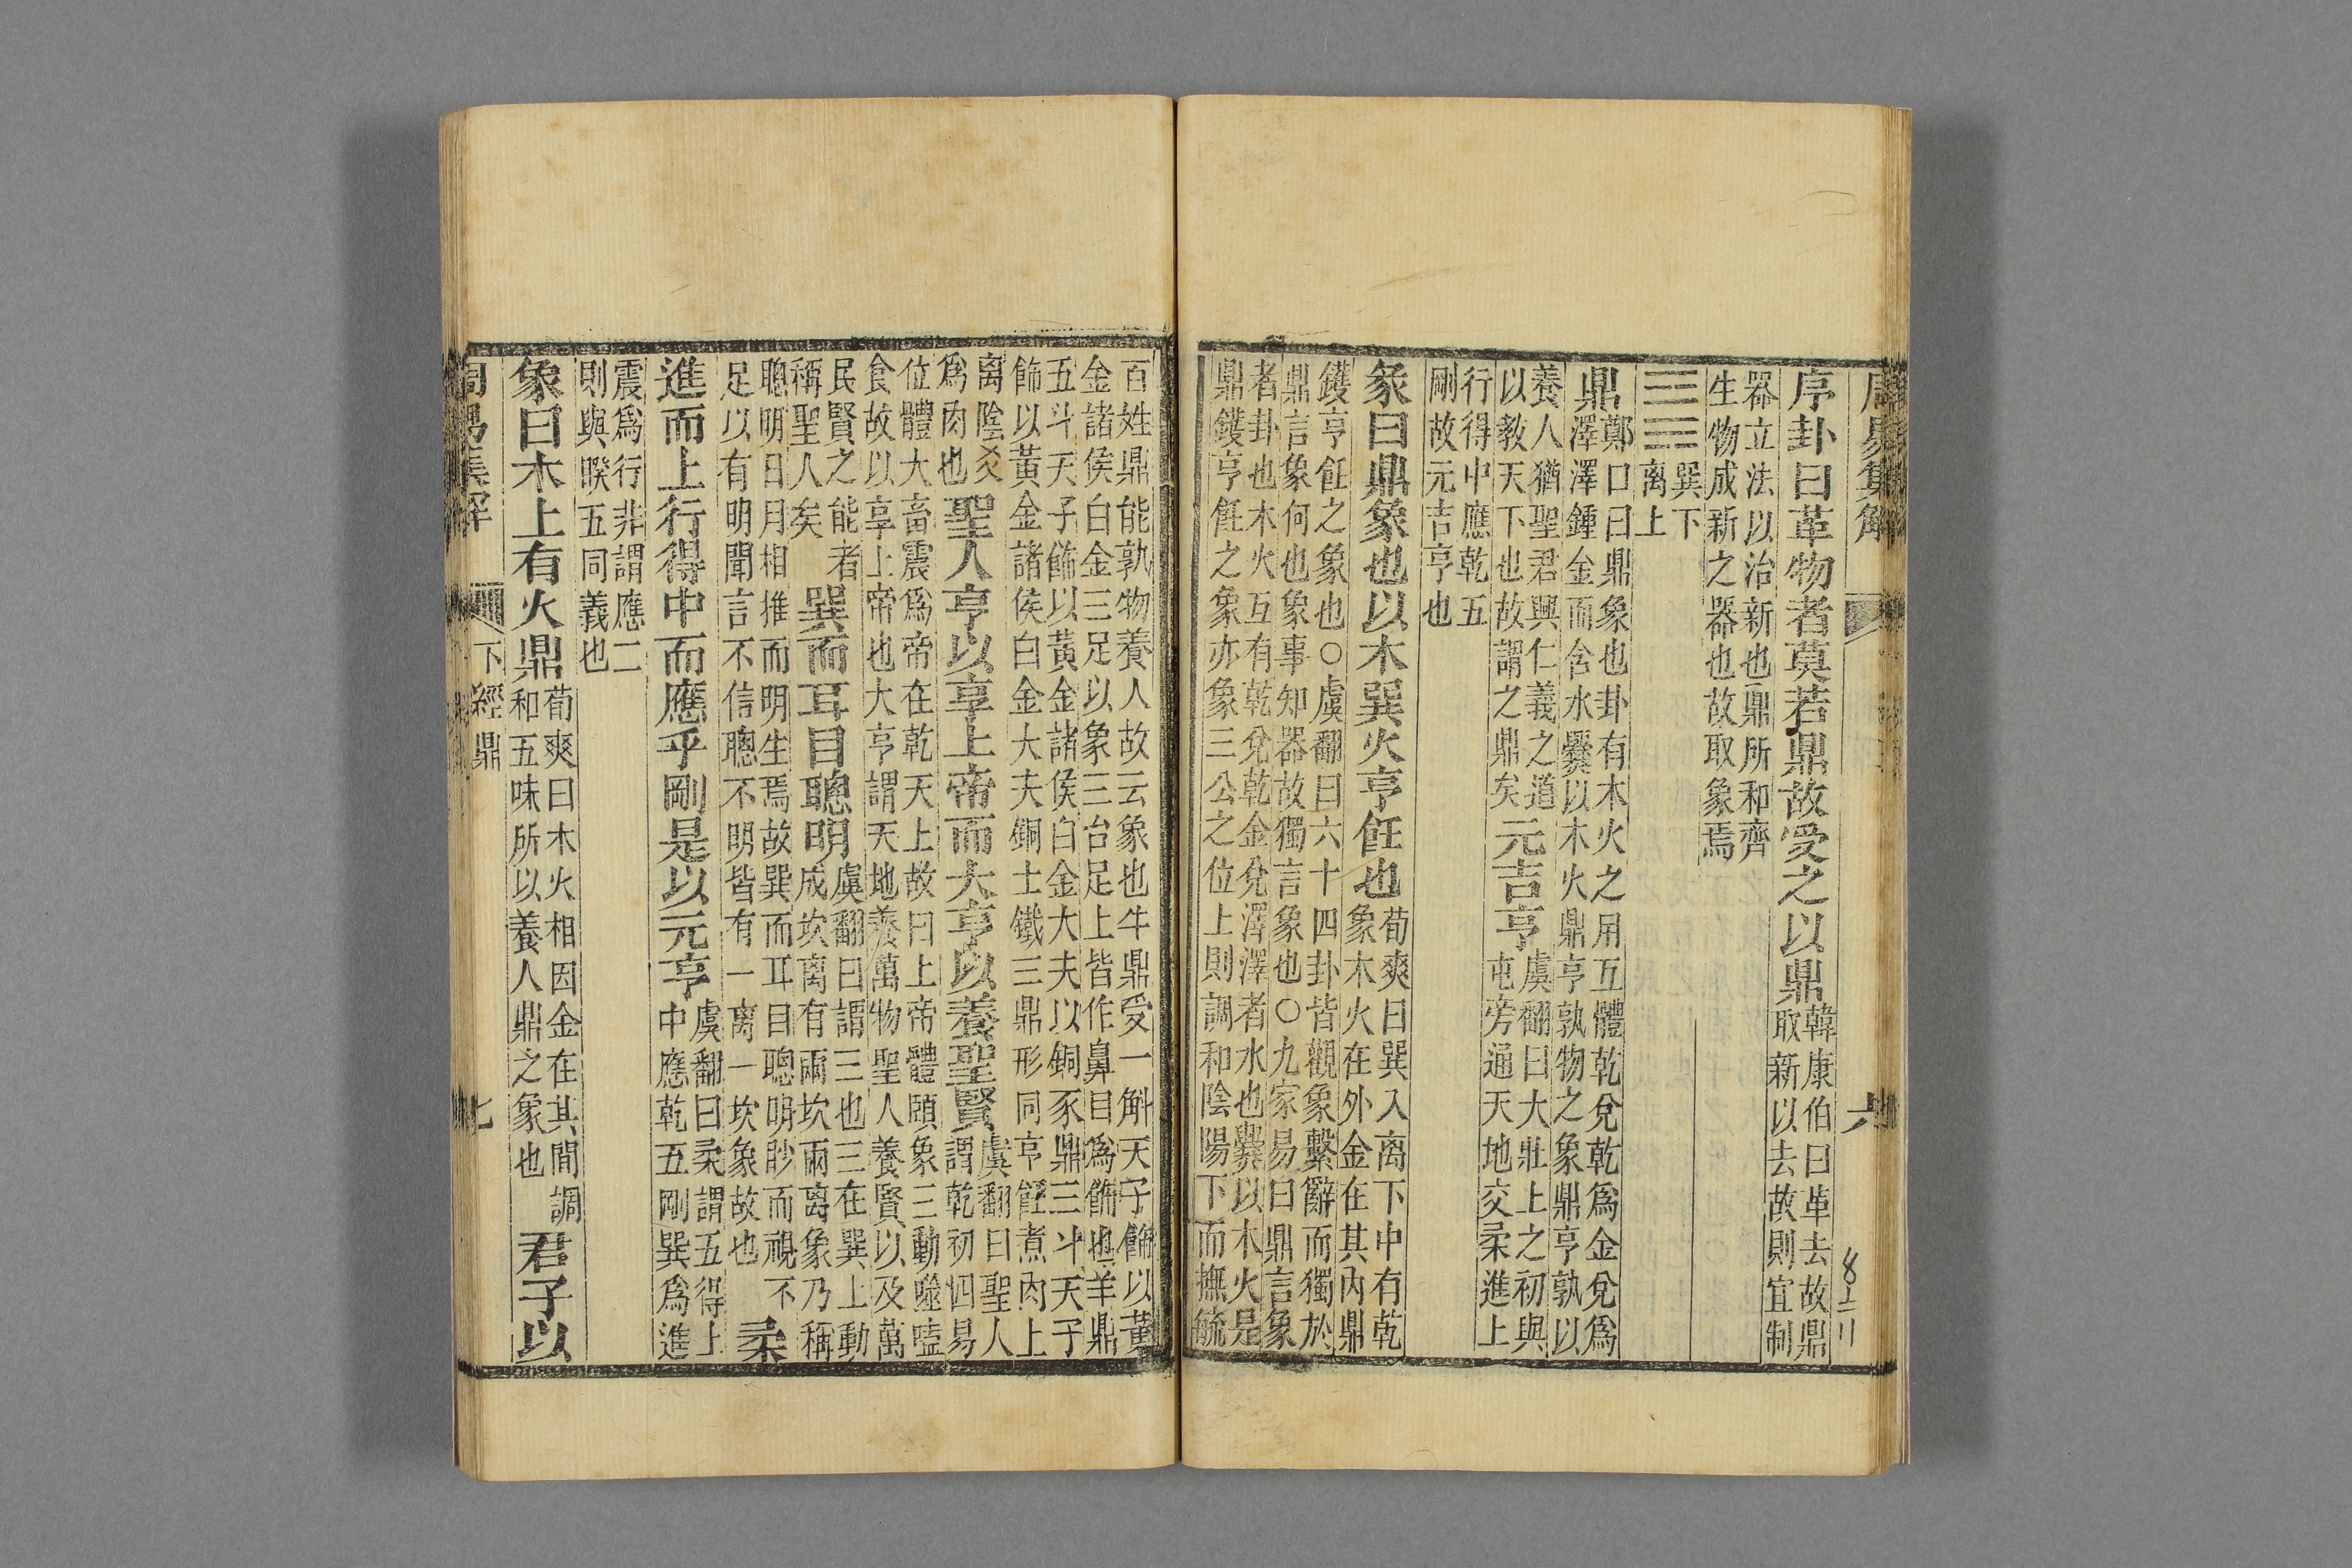 周易集解
六
序卦曰革物者莫若鼎故受之以鼎韓康伯曰革去故鼎
取新以去故則宜制
器立法以治新也鼎所和齊
生物成新之器也故取象焉
巽下
離上
鼎鄭口曰鼎象也卦有木火之用互體乾兌乾爲金兌爲
澤澤鍾金而含水爨以木火鼎亨孰物之象鼎亨孰以
養人猶聖君興仁義之道
以教天下也故謂之鼎矣元吉亨虞翻曰大壯上之初與
屯旁通天地交柔進上
行得中應乾五
剛故元吉亨也
彖曰鼎象也以木巽火亨飪也荀爽曰巽入離下中有乾
象木火在外金在其內鼎
鑊亨飪之象也○虞翻曰六十四卦皆觀象繫辭而獨於
鼎言象何也象事知器故獨言象也○九家易曰鼎言象
者卦也木火互有乾兌乾金兌澤澤者水也爨以木火是
鼎鑊亨飪之象亦象三公之位上則調和陰陽下而撫毓
百姓鼎能孰物養人故云象也牛鼎受一斛天子飾以黃
金諸侯白金三足以象三台足上皆作鼻目爲飾也羊鼎
五斗天子飾以黃金諸侯白金大夫以銅豕鼎三斗天子
飾以黃金諸侯白金大夫銅士鐵三鼎形同亨飪煮肉上
離陰爻
爲肉也聖人亨以享上帝而大亨以養聖賢虞翻曰聖人
謂乾初四易
位體大畜震爲帝在乾天上故曰上帝體頤象三動噬嗑
食故以享上帝也大亨謂天地養萬物聖人養賢以及萬
民賢之能者
稱聖人矣巽而耳目聰明虞翻曰謂三也三在巽上動
成坎離有兩坎兩離象乃稱
聰明日月相推而明生焉故巽而耳目聰明眇而視不
足以有明聞言不信聰不明皆有一離一坎象故也柔
進而上行得中而應乎剛是以元亨虞翻曰柔謂五得上
中應乾五剛巽爲進
震爲行非謂應二
則與睽五同義也
象曰木上有火鼎荀爽曰木火相因金在其間調
和五味所以養人鼎之象也君子以
周易集解 下經鼎 七